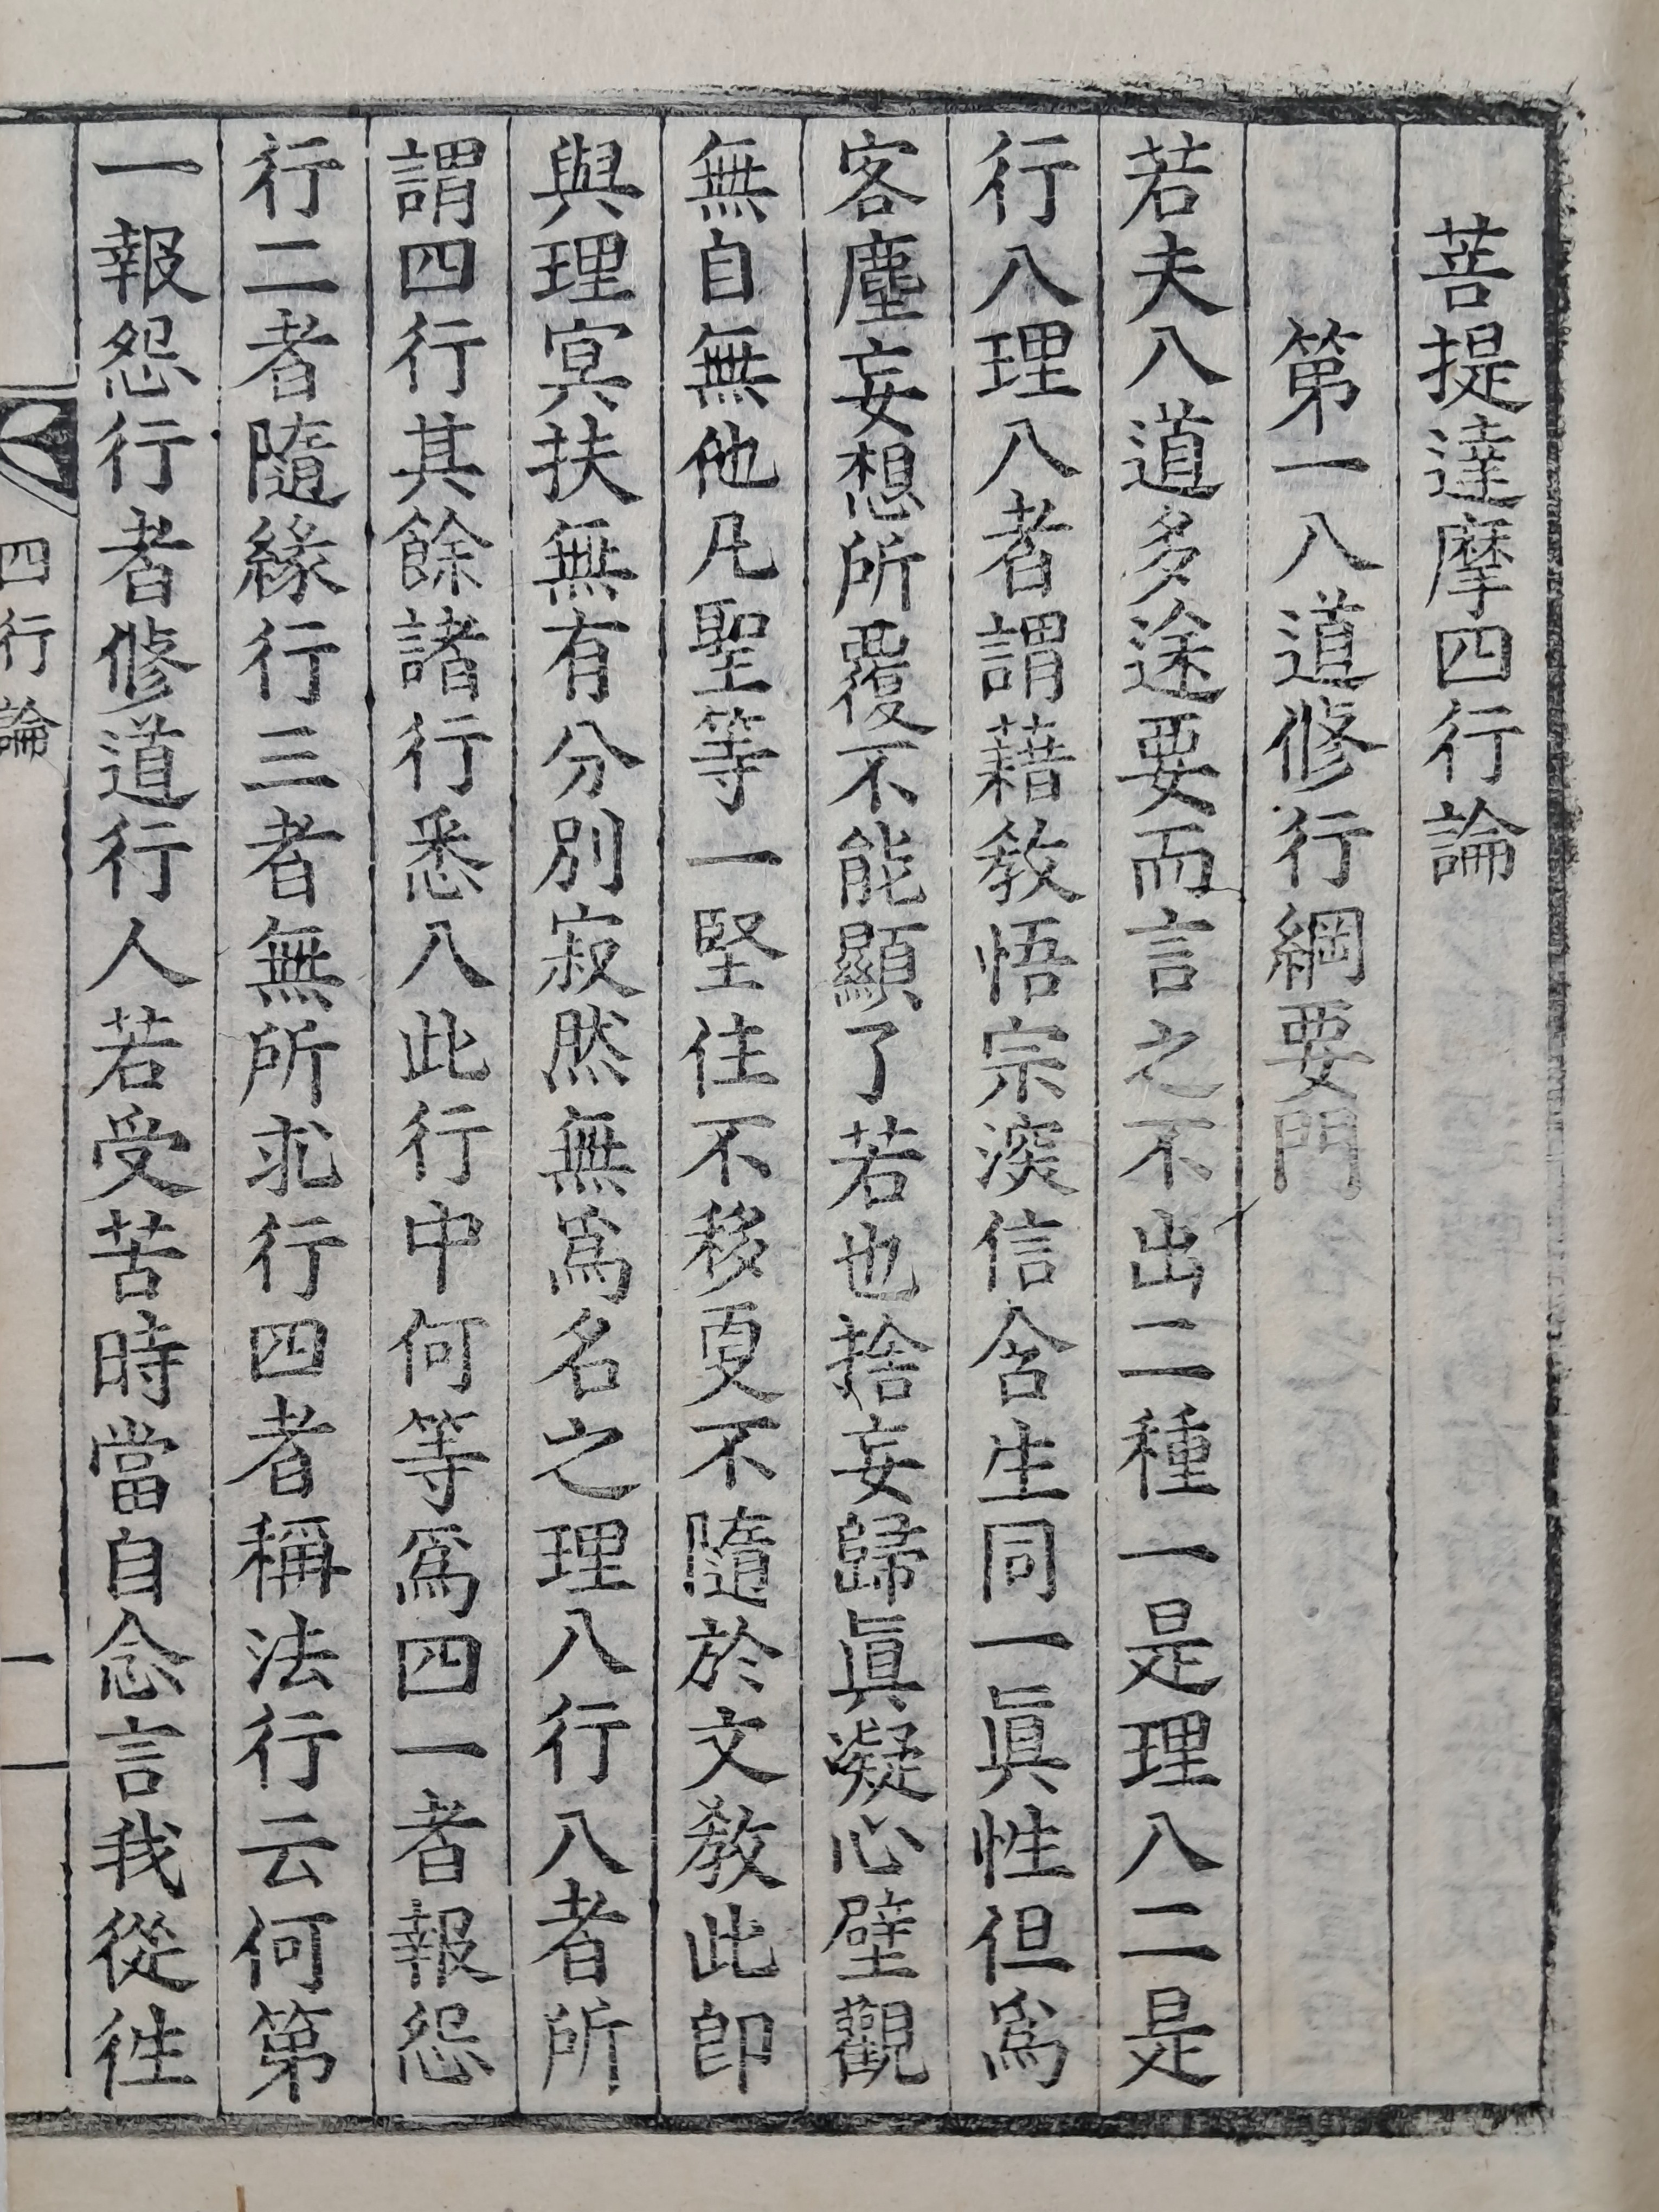 菩提達摩四行論
第一入道修行綱要門
若夫入道多途要而言之不出二種一是理入二是
行入理入者謂藉教悟宗深信含生同一眞性但爲
客塵妄想所覆不能顯了若也捨妄歸眞凝心壁觀
無自無他凡聖等一堅住不移更不隨於文教此即
與理冥扶無有分別寂然無爲名之理入行入者所
謂四行其餘諸行悉入此行中何等爲四一者報怨
行二者隨緣行三者無所求行四者稱法行云何第
一報怨行者修道行人若受苦時當自念言我從往
四行論
一